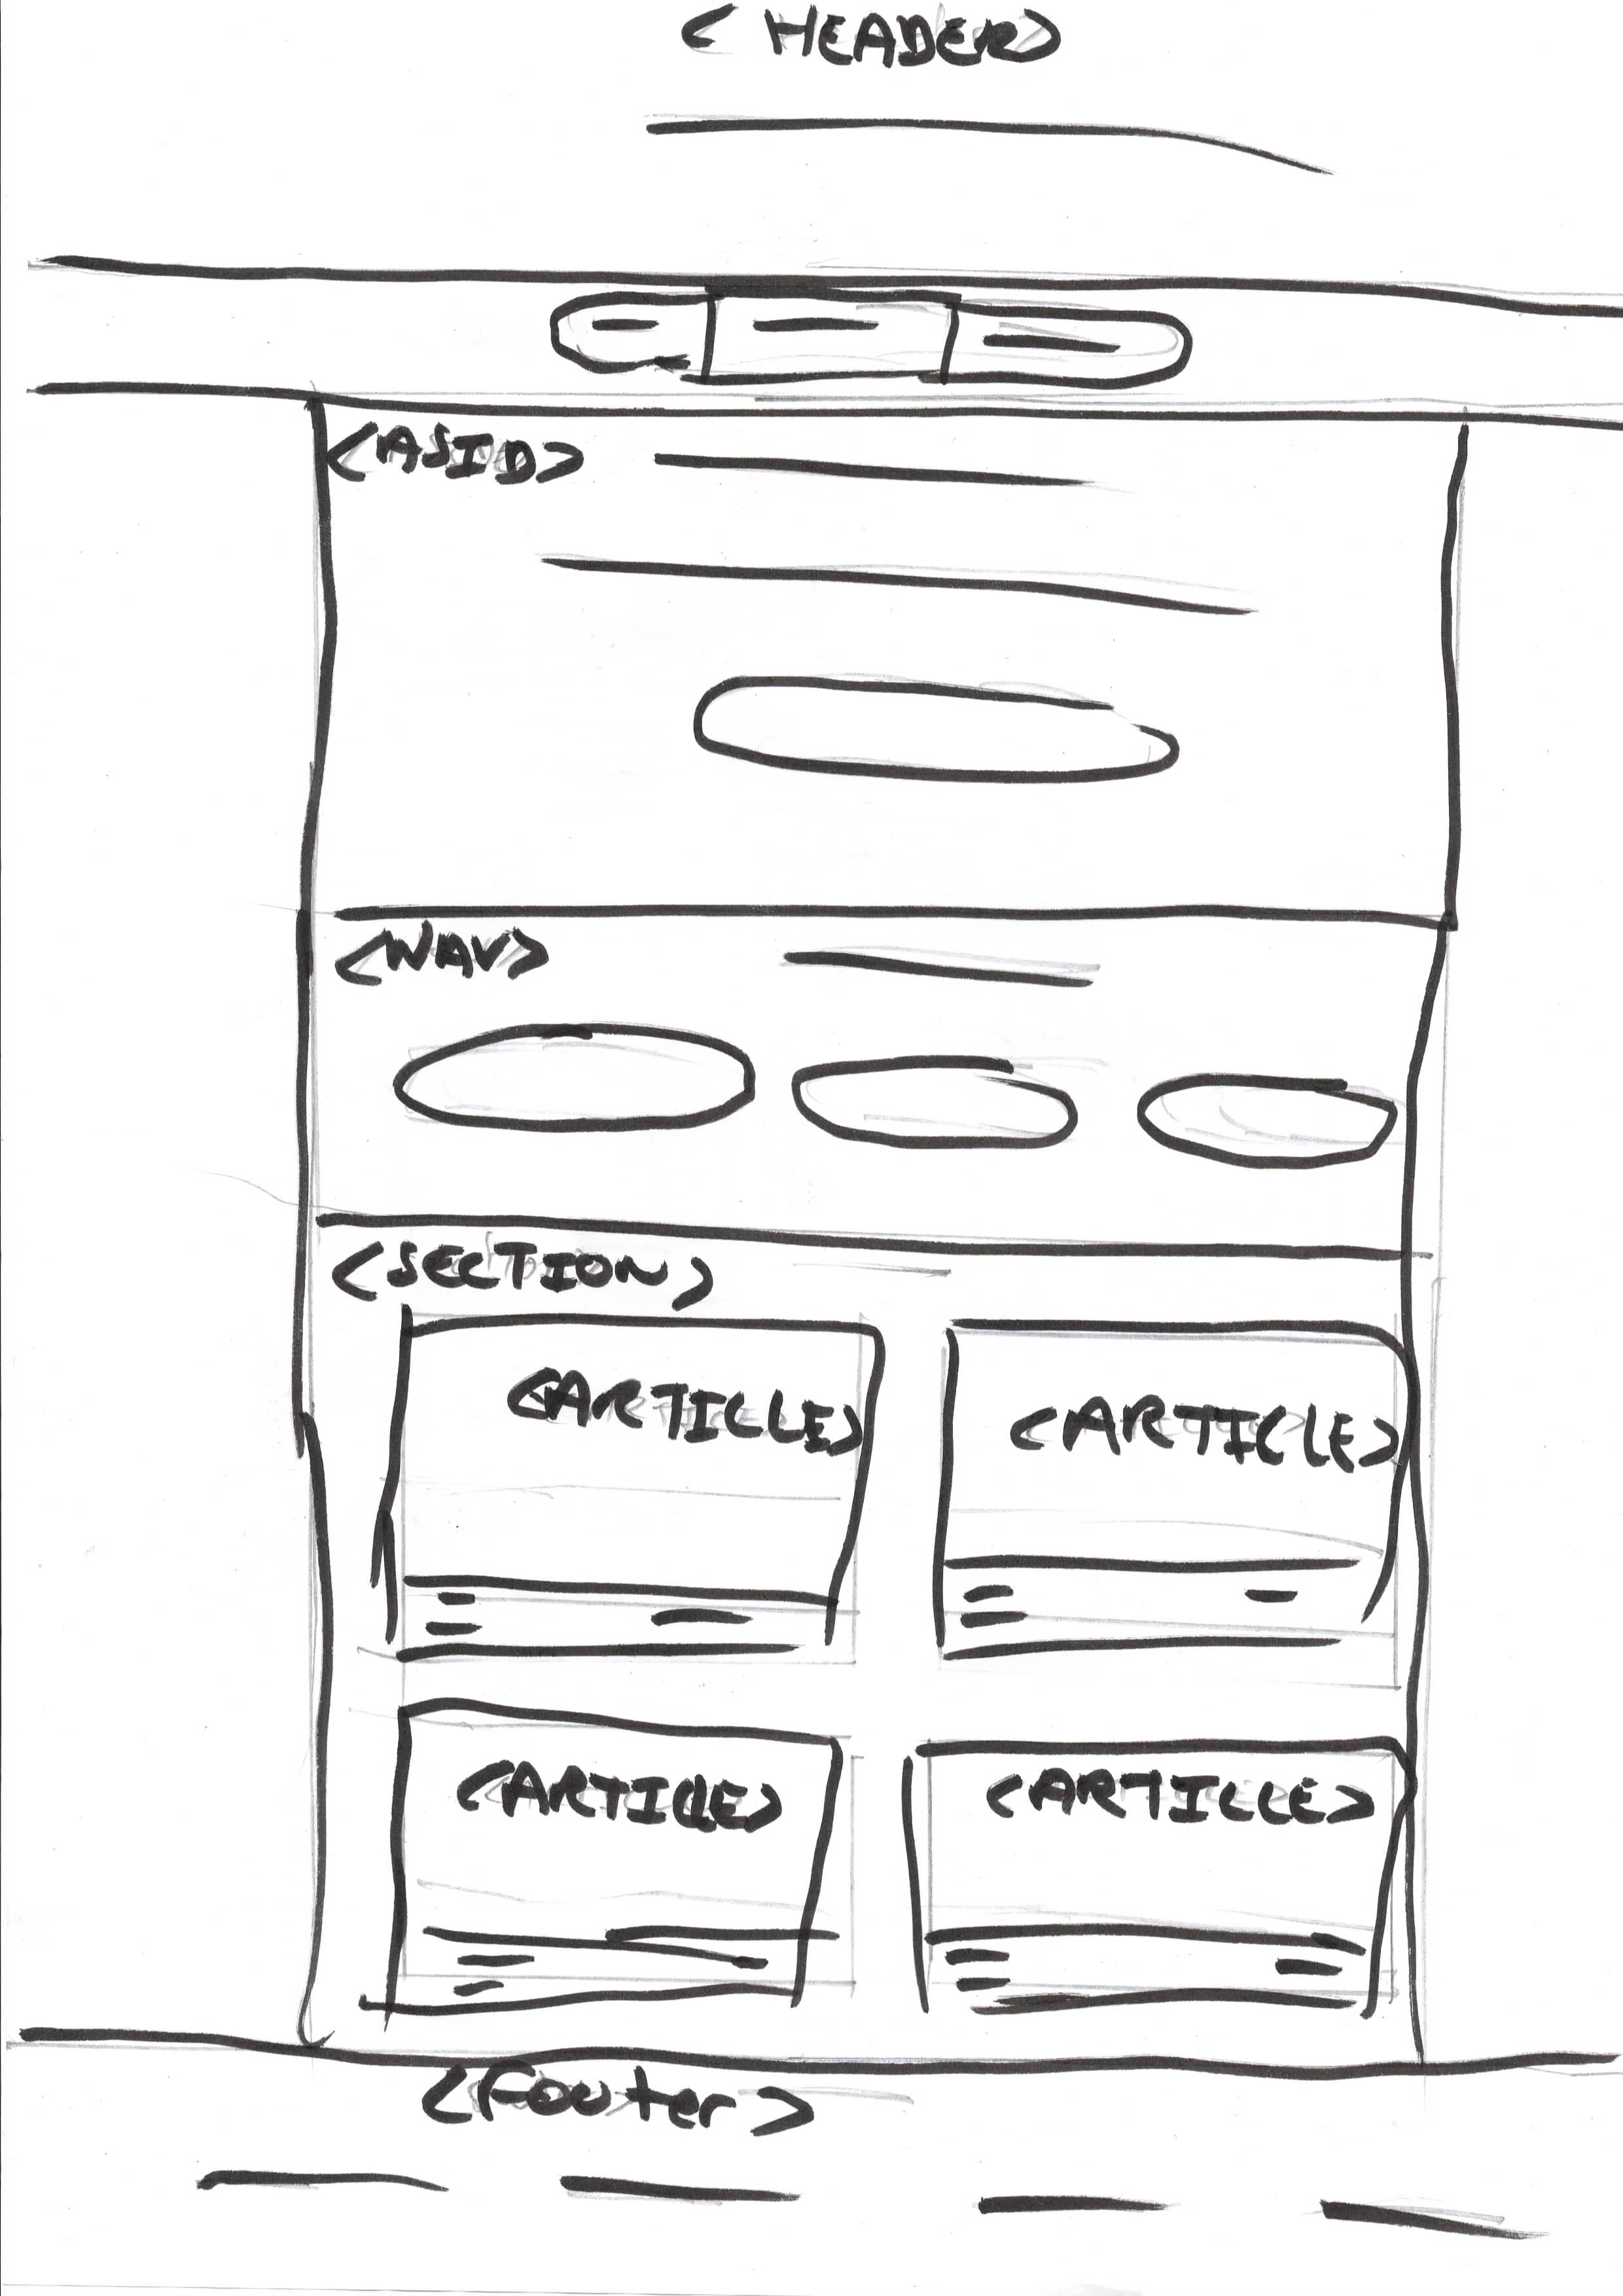 <HEADER>
<ASID>
<NAV>
<SECTION>
<ARTICLE>
<ARTICLE>
<ARTICLE>
<ARTICLE>
<Footer>